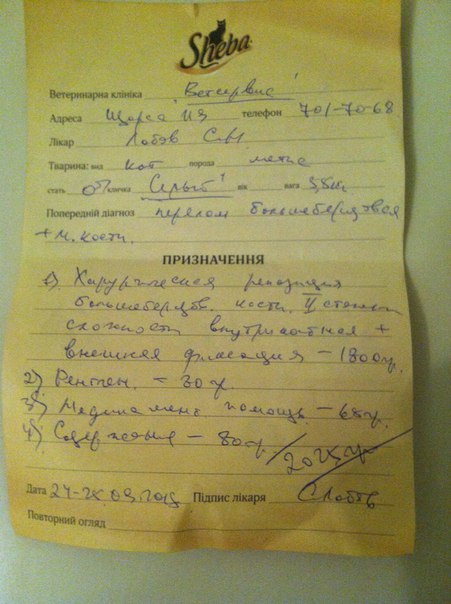 Sheba
Ветеринарна клініка "Ветсервис"
Адреса Щорса телефон 701-70-68
Лікар Лобов С.Н
Тварина: вид кот порода метис
стать ♂ кличка "Серый" вік вага
Попередній діагноз перелом большеберцовая
+ м. кости.
ПРИЗНАЧЕННЯ
1) Хирургическая репозиция
большеберцов. кости. II степени
сложности внутрикостная +
внешняя фиксация – 1800гр.
2) Рентген. – 80гр.
3) Медикамент помощь – 65гр.
4) Содержание – 80гр.
2025гр
Дата Підпис лікаря СЛобов
Повторний огляд